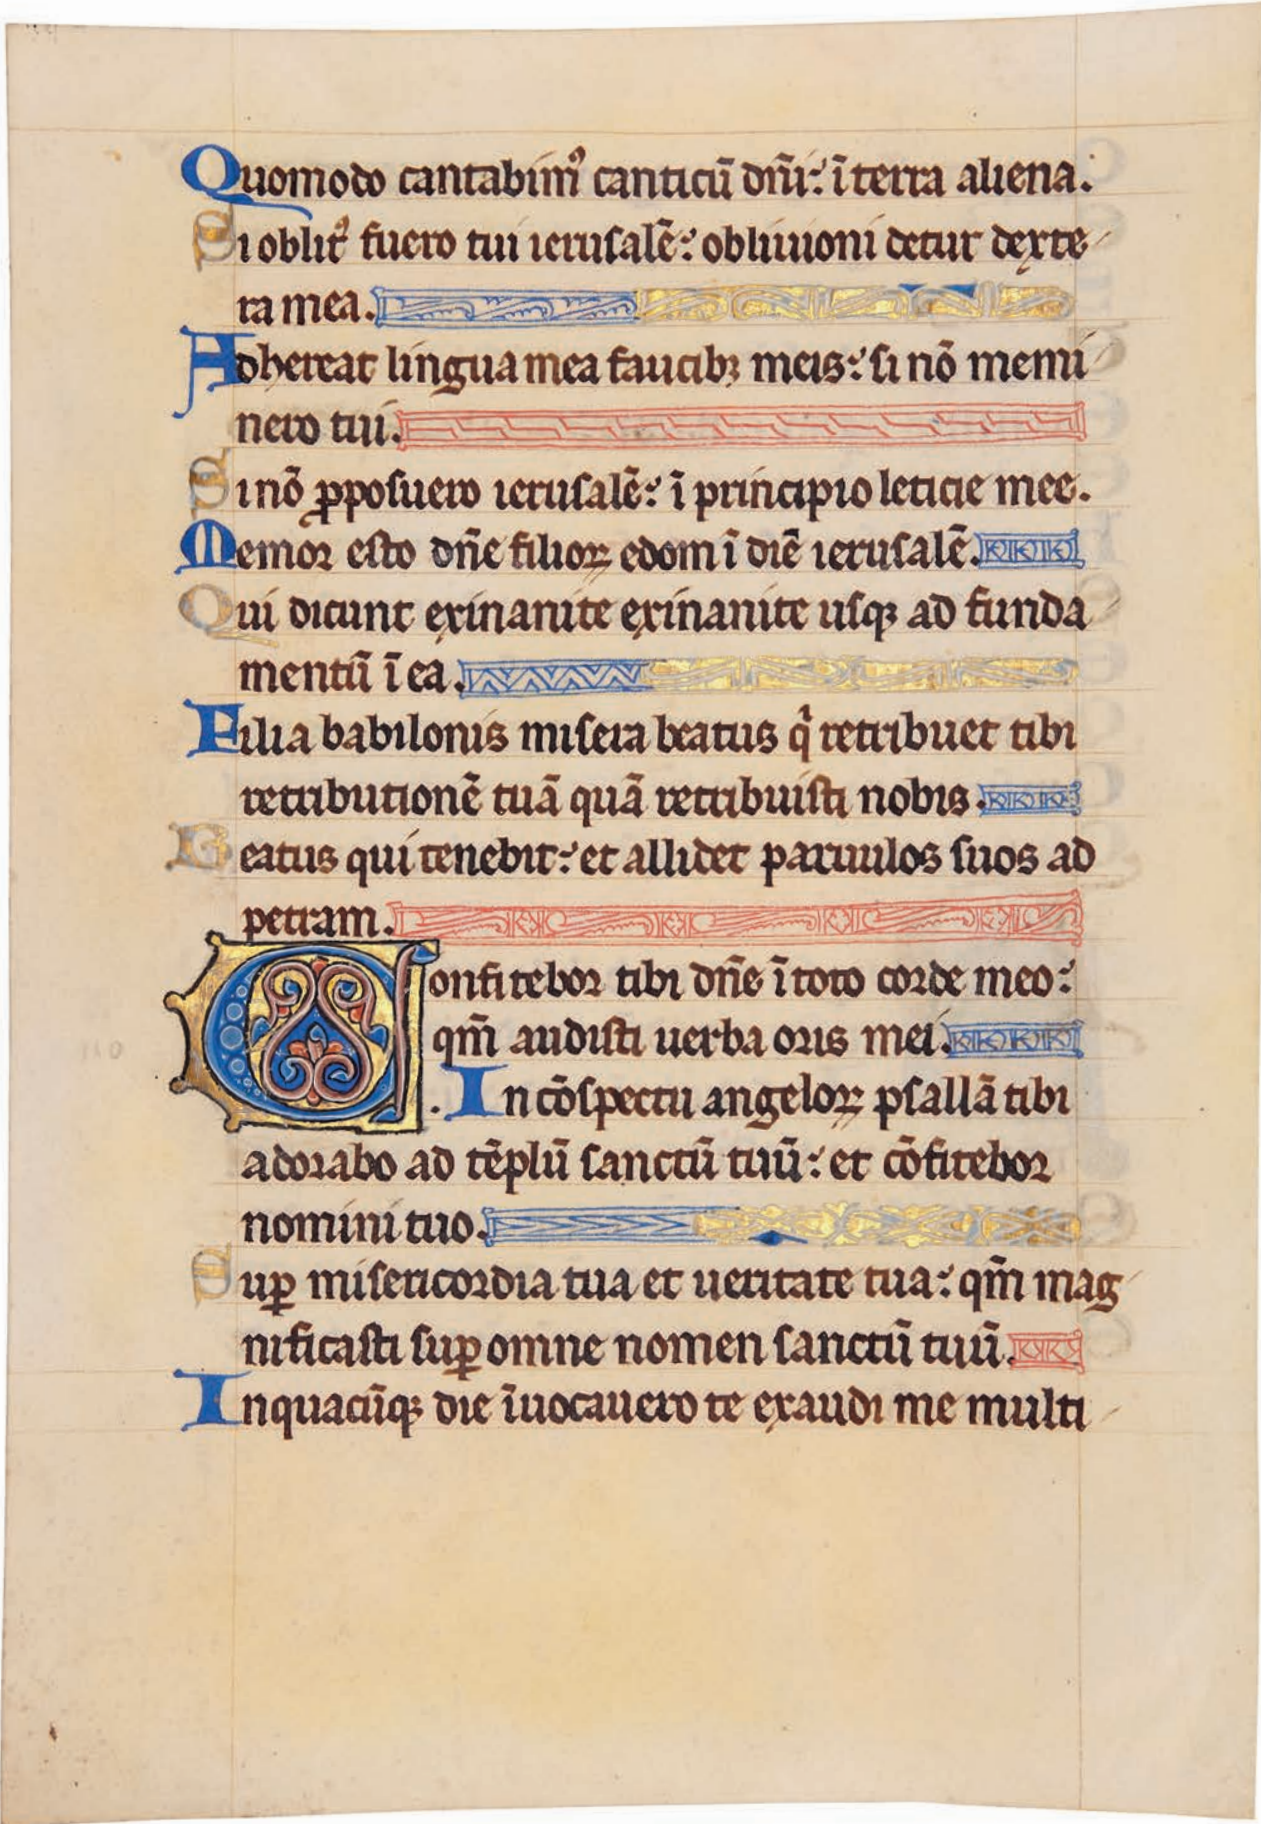 Quomodo cantabimꝰ canticū dn̄i: ī terra aliena.
Si oblitꝰ fuero tui ierusalē: obliuioni detur dexte
ra mea.
Adhereat lingua mea faucibꝫ meis: si nō memi
nero tui.
Si nō ꝓposuero ierusalē: ī principio leticie mee.
Memor esto dn̄e filioꝝ edom ī diē ierusalē.
Qui dicunt exinanite exinanite usqꝫ ad funda
mentū ī ea.
Filia babilonis misera beatus qͥ retribuet tibi
retributionē tuā quā retribuisti nobis.
Beatus qui tenebit: et allidet paruulos suos ad
petram.
Confitebor tibi dn̄e ī toto corde meo:
qm̄ audisti uerba oris mei.
. In cōspectu angeloꝝ psallā tibi
adorabo ad tēplū sanctū tuū: et cōfitebor
nomini tuo.
Suꝑ misericordia tua et ueritate tua: qm̄ mag
nificasti suꝑ omne nomen sanctū tuū.
In quacūqꝫ die īuocauero te exaudi me multi
110